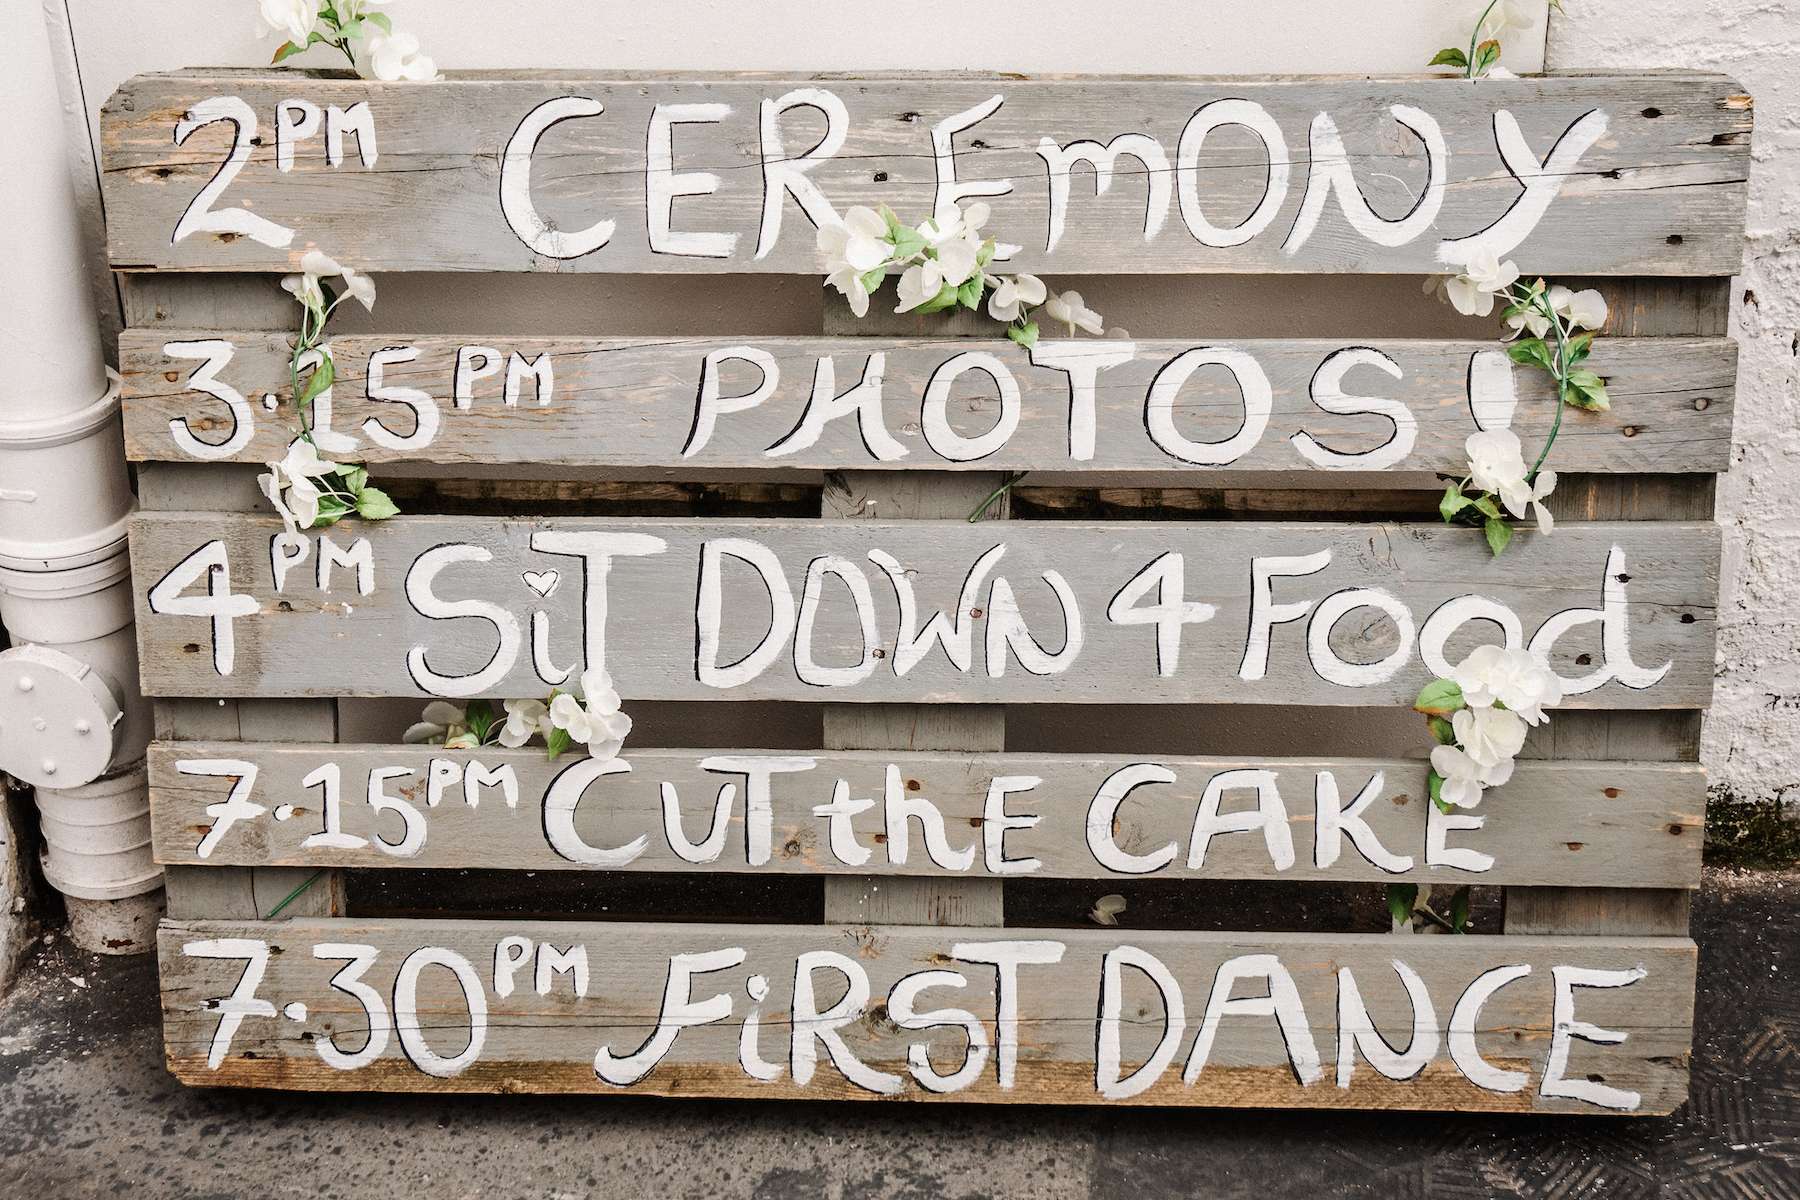 2PM CEREmONY
3.15PM PHOTOS!
4PM SiT DOWN 4 Food
7.15PM CUT thE CAKE
7.30PM FiRST DANCE